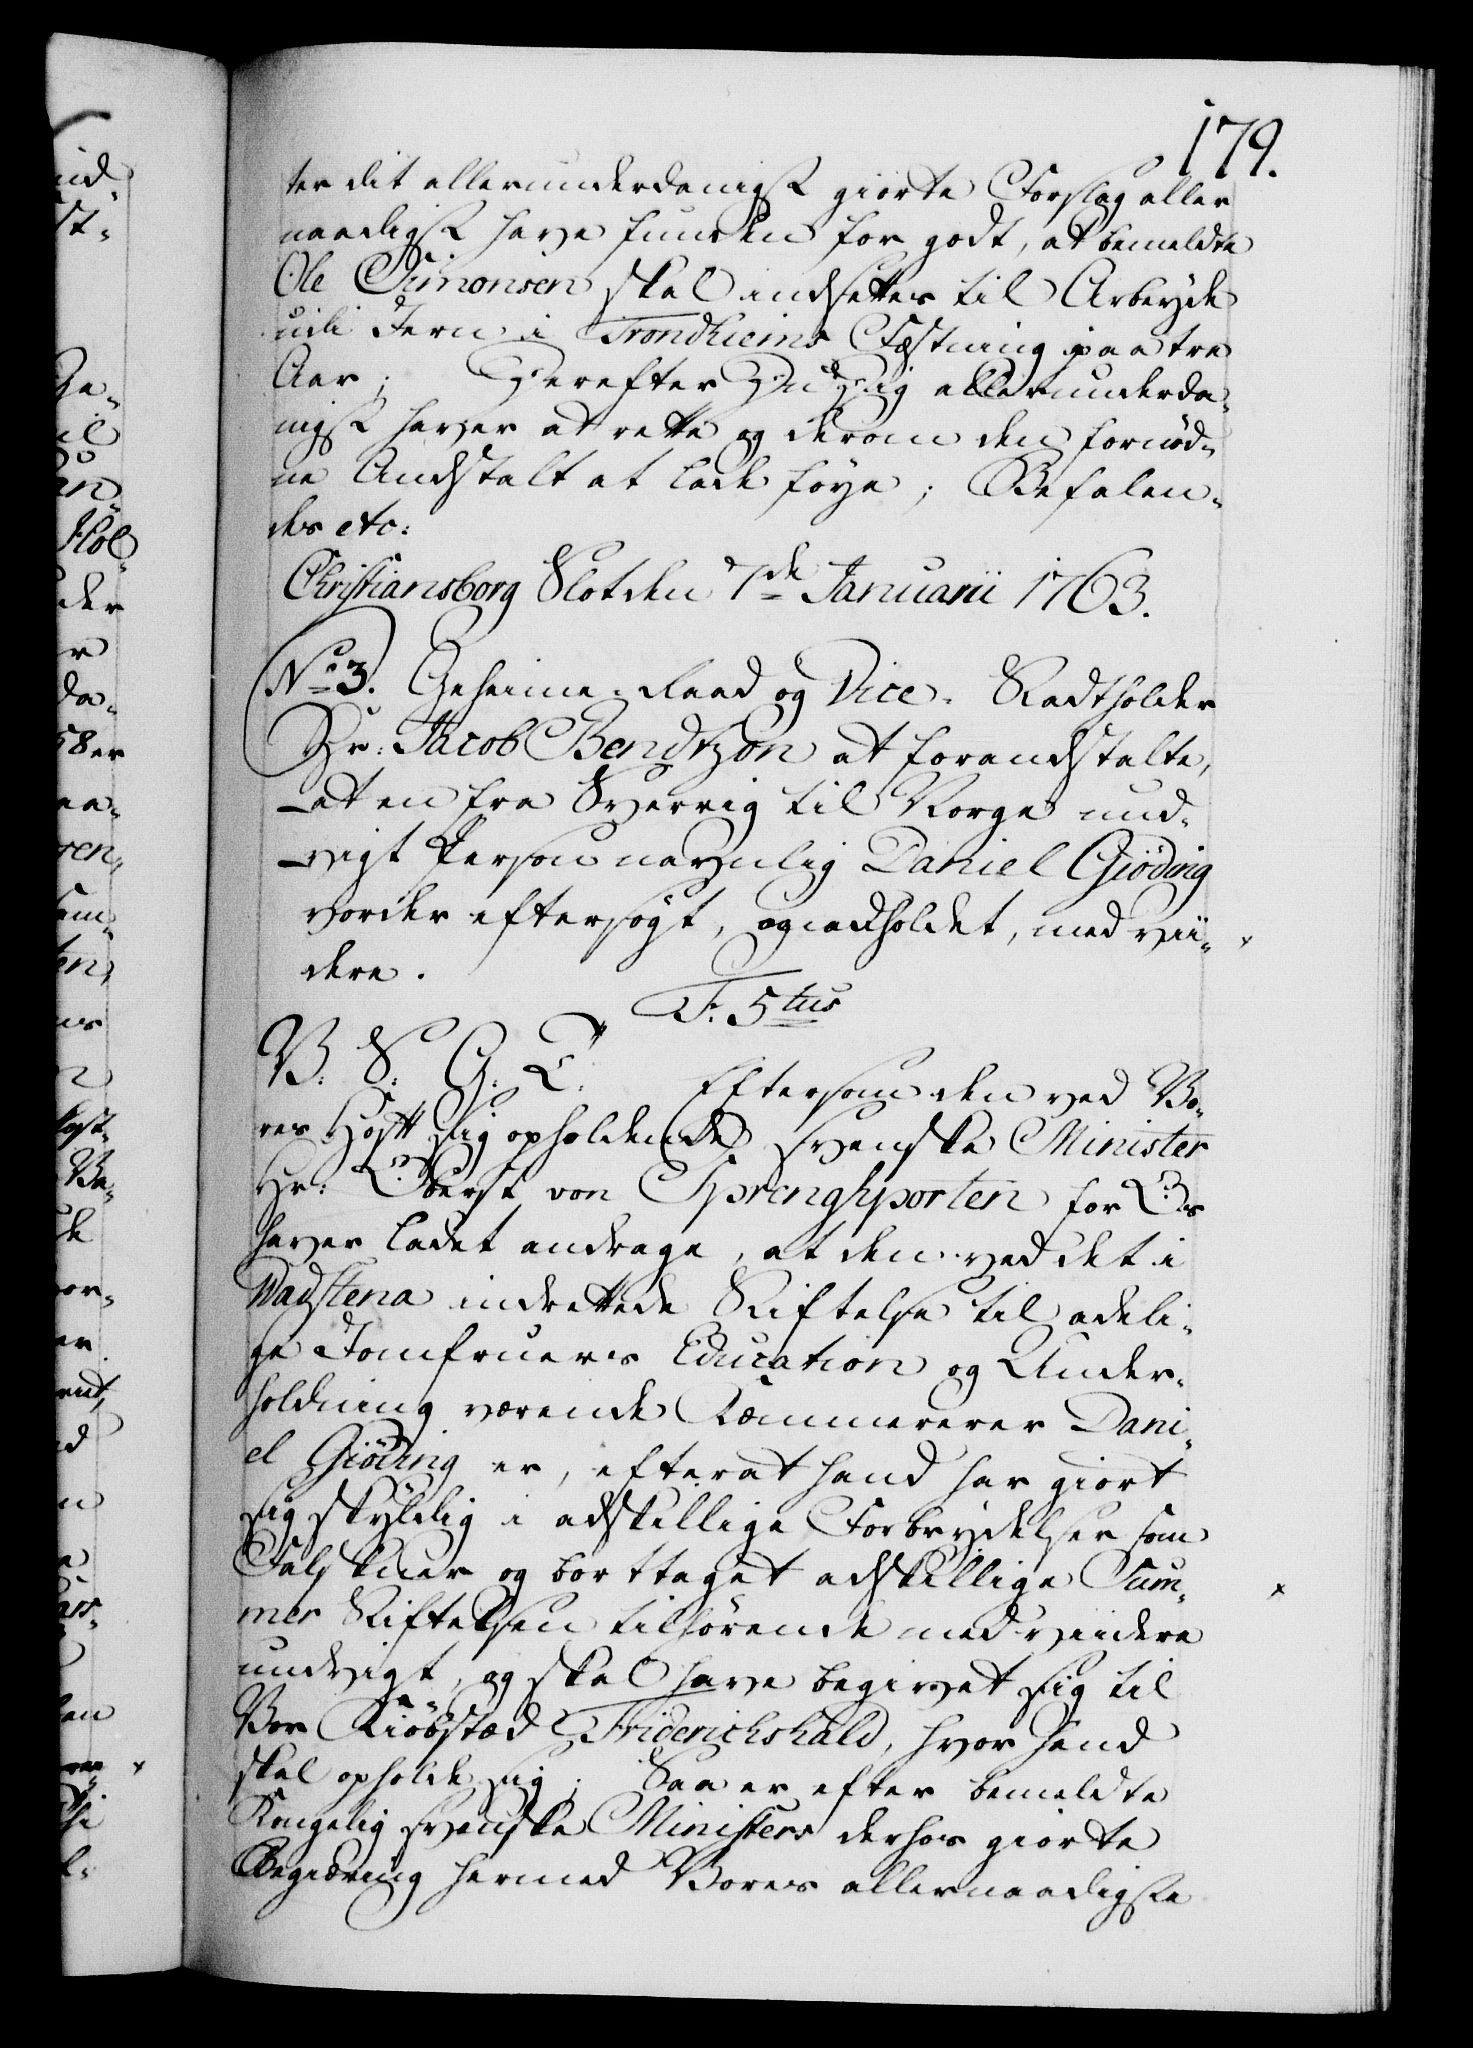 179.
ter dit allerunderdanigst giorte Forslag aller
naadigst have funden for godt, at bemeldte
Ole Simonsen skal indsettes til Arbeyde
udi Jern i Trondhiems Fæstning paa tre
Aar; Herefter Du Dig allerunderda-
nigst haver at rette og derom den fornød-
ne Andstalt at lade føye; Befalen-
des etc:
Christiansborg Slot den 7de Januarii 1763.
No 3. Geheime-Raad og Vice-Stadtholder
Hr: Jacob Bendtzon at forandstalte,
at en fra Sverrig til Norge und-
vigt Person navnlig Daniel Giöding
vorder eftersøgt, og anholdet, med vii-
dere.
F. 5tus
V. S. G. T. Eftersom den ved Vo-
res Hoff sig opholdende svenske Minister
Hr: Oberst von Sprenghporten for Os
haver ladet andrage, at den ved det i
Wadstena indrettede Stiftelse til adeli-
ge Jomfruers Education og Under-
holdning værende Cammererer Dani-
el Giöding er, efterat hand har giort
sig skyldig i adskillige Forbrydelser som
Falskner og borttaget adskillige Sum-
mer Stiftelsen tilhørende med viidere
undvigt, og skal have begivet sig til
Vor Kiøbstæd Friderichshald, hvor hand
skal opholde sig; Saa er efter bemeldte
Kongelig svenske Ministers derhos giorte
Begiæring hermed Vores allernaadigste